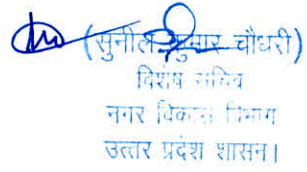 (सुनील कुमार चौधरी)
विशेष सचिव
नगर विकास विभाग
उत्तर प्रदेश शासन।